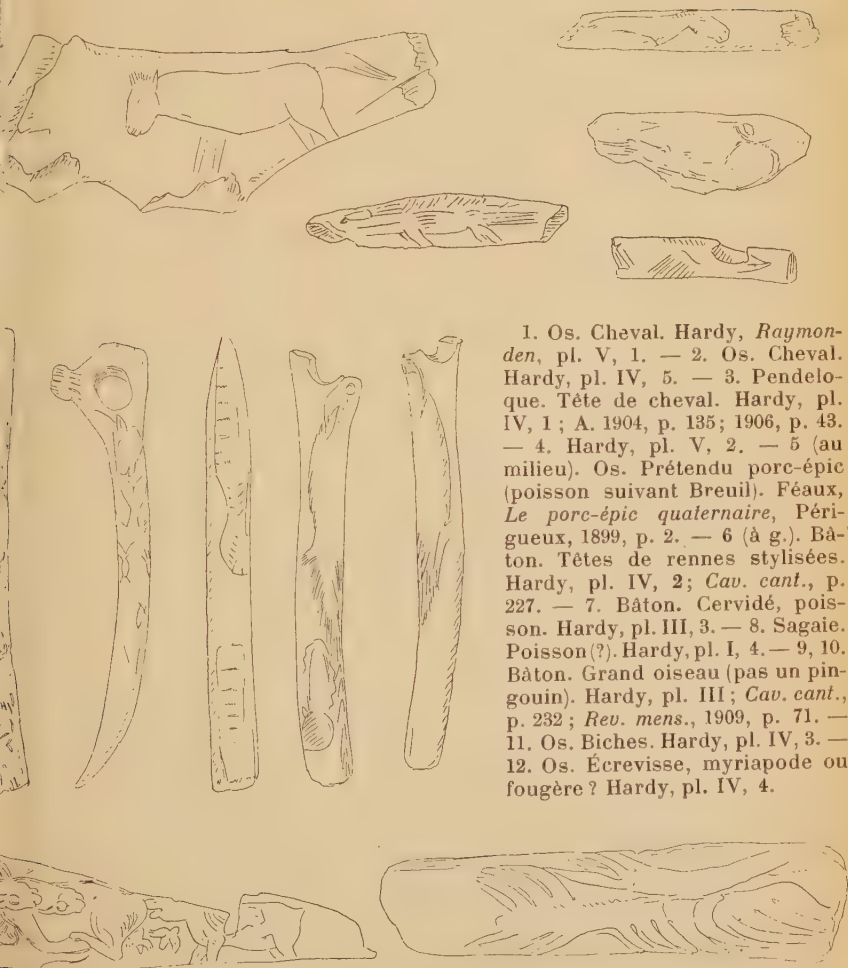 1. Os. Cheval. Hardy, Raymon-
den, pl. V, 1. — 2. Os. Cheval.
Hardy, pl. IV, 5. — 3. Pendelo-
que. Tête de cheval. Hardy, pl.
IV, 1 ; A. 1904, p. 135; 1906, p. 43.
— 4. Hardy, pl. V, 2. — 5 (au
milieu). Os. Prétendu porc-épic
(poisson suivant Breuil). Féaux,
Le porc-épic quaternaire, Péri-
gueux, 1899, p. 2. — 6 (à g.). Bâ-
ton. Têtes de rennes stylisées.
Hardy, pl. IV, 2; Cav. cant., p.
227. — 7. Bâton. Cervidé, pois-
son. Hardy, pl. III, 3. — 8. Sagaie.
Poisson (?). Hardy, pl. I, 4. — 9, 10.
Bâton. Grand oiseau (pas un pin-
gouin). Hardy, pl. III ; Cav. cant.,
p. 232 ; Rev. mens., 1909, p. 71. —
11. Os. Biches. Hardy, pl. IV, 3. —
12. Os. Écrevisse, myriapode ou
fougère ? Hardy, pl. IV, 4.